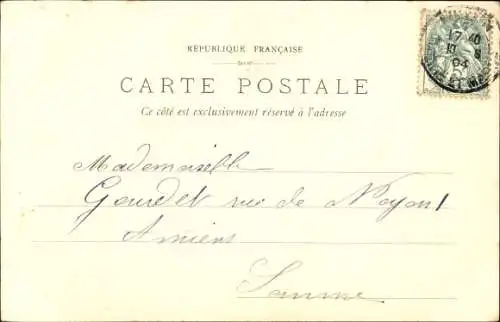 RÉPUBLIQUE FRANÇAISE
CARTE POSTALE
Ce côté est exclusivement réservé à l'adresse
17 40
04
Mademoiselle
Gourdet rue de Noyon 1
Amiens
Somme